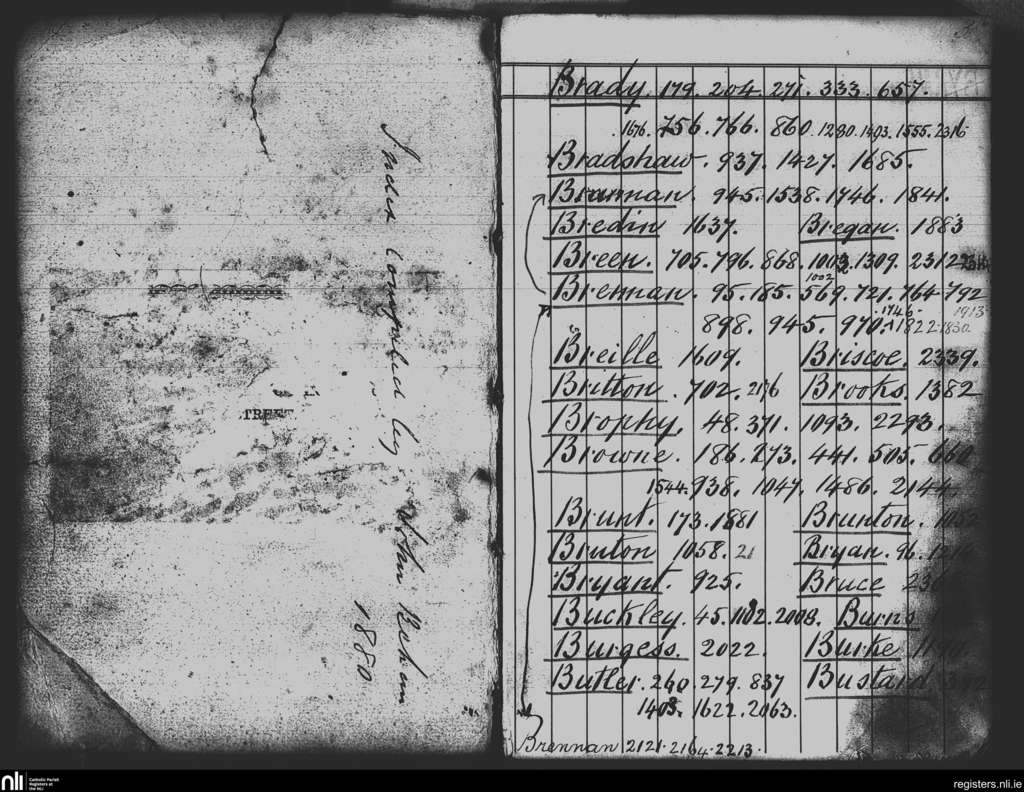 Index Compiled by John
1880
TREET
Brady. 179. 204. 271. 333. 657.
1676. 756. 766. 860. 1280. 1403. 1555. 2316
Bradshaw. 937. 1427. 1685.
Brannan. 945. 1538. 1746. 1841.
Bredin 1637. Bregan. 1883
Breen. 705. 796. 868. 1003. 1309. 2312
1002
Brennan. 95. 185. 569. 721. 764 792
1746. 1913
898. 945. 970. 1822. 1830.
Breille 1609. Briscoe. 2339.
Britton. 702. 2176 Brooks. 1382
Brophy. 48. 371. 1093. 2293.
Browne. 186. 273. 441. 505. 660
1544. 938. 1047. 1486. 2144.
Brunt. 173. 1881 Brunton.
Bruton 1058. 21 Bryan. 96.
Bryant. 925. Bruce
Buckley. 45. 1102. 2008. Burns
Burgess. 2022. Burke
Butler. 260. 279. 837 Bustard
1403. 1622. 2063.
Brennan 2121. 2164. 2213.
nli Catholic Parish
Registers at
the NLI
registers.nli.ie